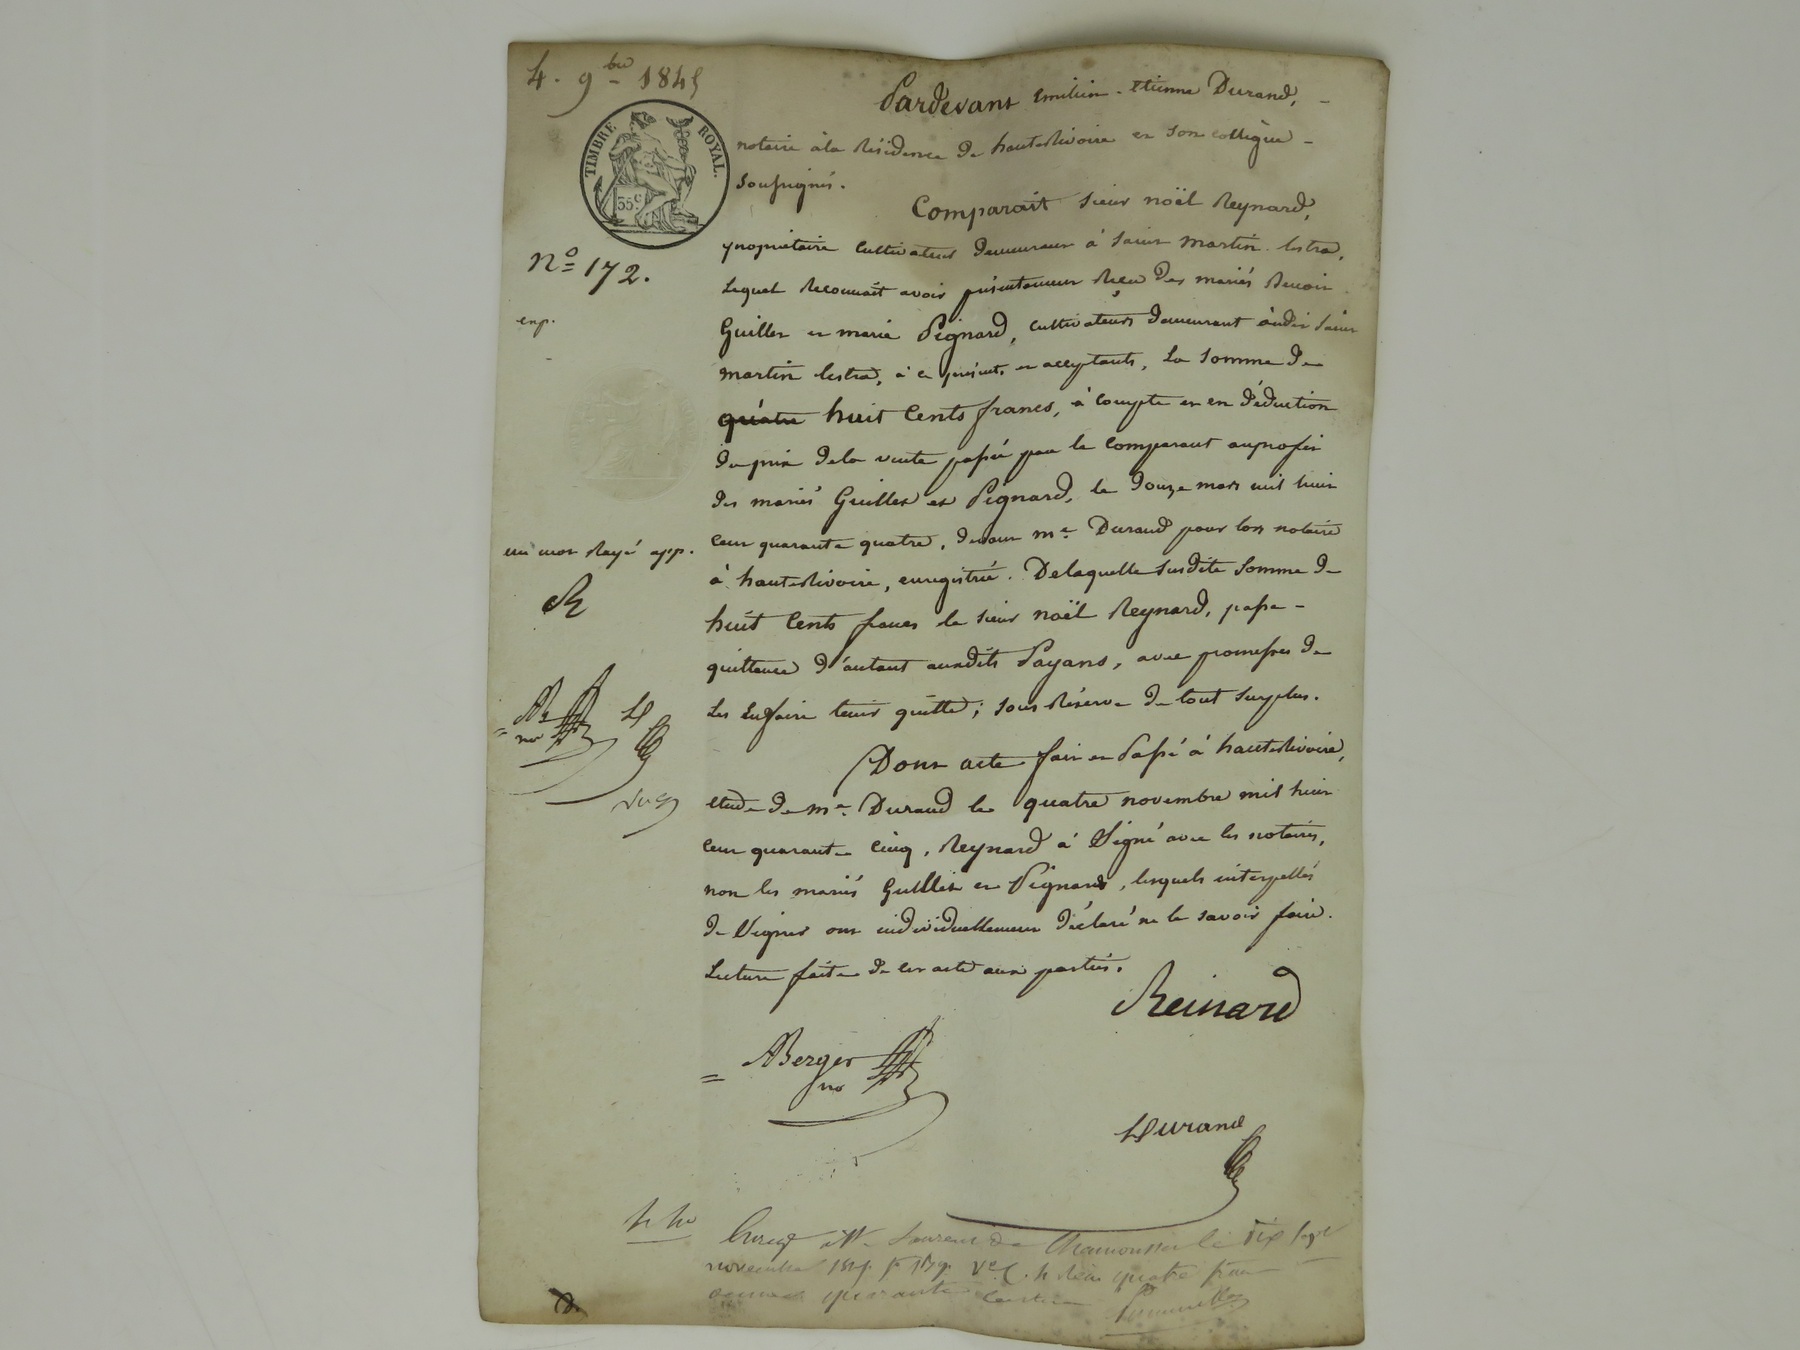 4. 9bre 1845
TIMBRE ROYAL.
35c
No 172.
exp.
Pardevant Emilien-Etienne Durand,
notaire à la Résidence de hauterivoire et son collègue
soussignés.
Comparait sieur noël Reynard,
propriétaire cultivateur demeurant à saint martin lestra,
lequel Reconnait avoir présentement Reçu des mariés Benoit
Guillet et marie Pignard, cultivateurs demeurant audit saint
martin lestra, à ce présents et acceptants, la somme de
quatre huit Cents francs, à compte et en déduction
du prix de la vente passée par le comparant au profit
des mariés Guillet et Pignard, le douze mars mil huit
cent quarante quatre, devant me Durand pour lors notaire
à hauterivoire, enregistrée. De laquelle susdite somme de
huit Cents francs le sieur noël Reynard, passe
quittance d'autant auxdits Payans, avec promesses de
les En faire tenir quitte; sous Réserve de tout surplus.
un mot Rayé app.
R
AB
no
D
Dont acte fait et Passé à hauterivoire,
etude de me Durand le quatre novembre mil huit
cent quarante cinq, Reynard à Signé avec les notaires,
non les mariés Guillet et Pignard, lesquels interpellés
de Signer ont individuellement déclaré ne le savoir faire.
Lecture faite de cet acte aux parties.
Reinard
ABerger
no
Durand
Enreg. à St Laurent de Chamousset le dix sept
novembre 1845 fo 179 Vo C. 4 Reçu quatre francs
décime quarante centimes